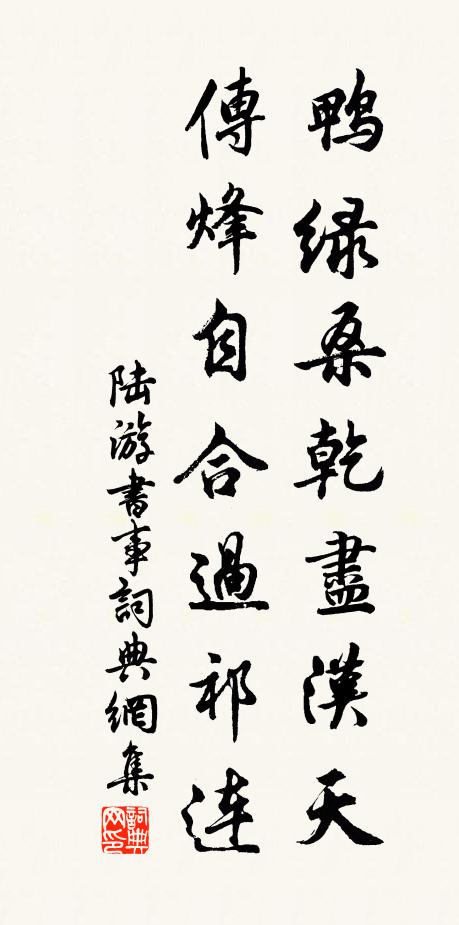 鴨綠桑乾盡漢天
傳烽自合過祁連
陸游書事詞典網集
詞典网印